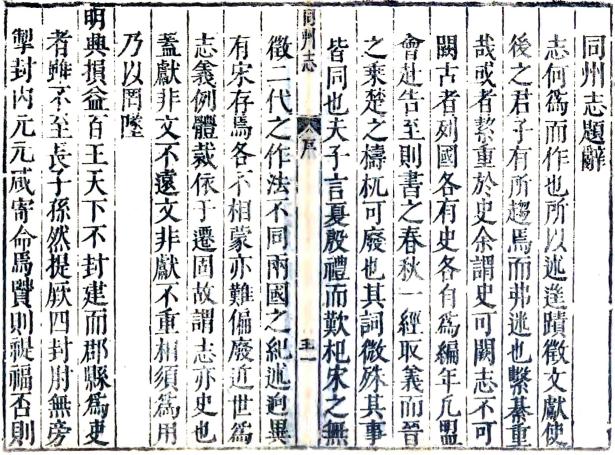 同州志題辭
志何為而作也所以述蹟徵文獻使
後之君子有所趨焉而弗迷也繫綦重
哉或者絜重於史余謂史可闕志不可
闕古者列國各有史各自為編年凡盟
會赴告至則書之春秋一經取義而晉
之乘楚之檮杌可廢也其詞微殊其事
皆同也夫子言夏殷禮而歎杞宋之無
同州志
序
徵二代之作法不同兩國之紀述逈異
有宋存焉各不相蒙亦難偏廢近世為
志義例體裁依于遷固故謂志亦史也
蓋獻非文不遠文非獻不重相須為用
乃以罔墜
明典損益百王天下不封建而郡縣為吏
者雖不至長子孫然提厥四封尉無旁
掣封內元元咸寄命焉賢則禔福否則